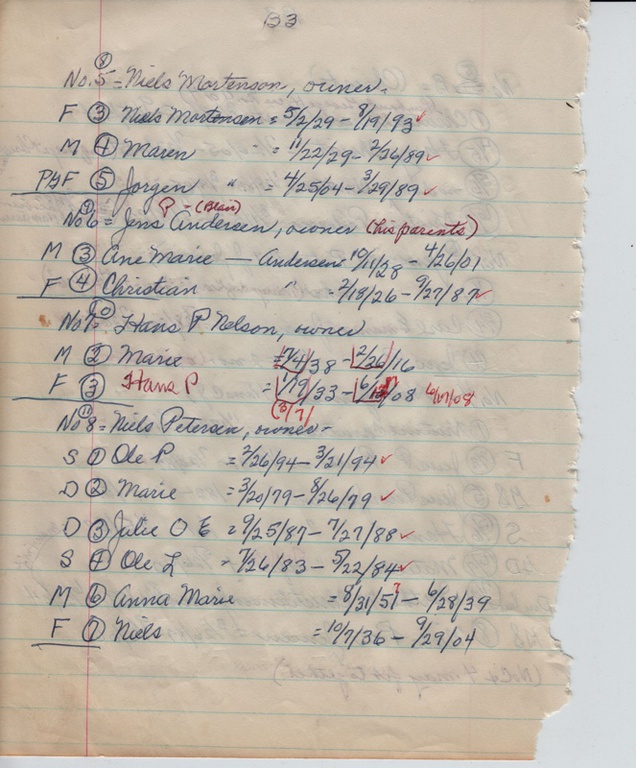 B3
(8)
No. 5 = Niels Mortenson, owner.
F (3) Niels Mortensen = 5/2/29 - 8/19/93 ✓
M (4) Maren " = 11/22/29 - 2/26/89 ✓
F (5) Jorgen " = 4/25/04 - 3/29/89 ✓
(9) P - (Blair)
No 6 = Jens Andersen, owner (his parents)
M (3) Ane Marie — Andersen - 10/11/28 - 4/26/01
F (4) Christian " - 2/18/26 - 9/27/87 ✓
(10)
No 7 = Hans P Nelson, owner
M (2) Marie = 7/4/38 - 2/26/16
F (3) Hans P = 1/19/33 - 6/ /08 6/17/08
(3/7/
(11)
No 8 = Niels Petersen, owner -
S (1) Ole P = 2/26/94 - 3/21/94 ✓
D (2) Marie = 3/20/79 - 8/26/79 ✓
D (3) Julie O E = 9/25/87 - 7/27/88 ✓
S (4) Ole L - 7/26/83 - 5/22/84 ✓
M (6) Anna Marie = 8/31/51 ? - 6/28/39
F (7) Niels = 10/7/36 - 9/29/04